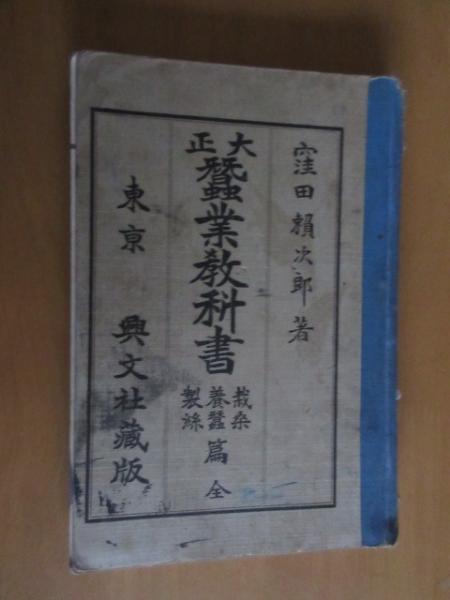 窪田頼次郎著
大正
蠶業教科書
栽桑
養蠶
製絲
篇全
東京 興文社藏版